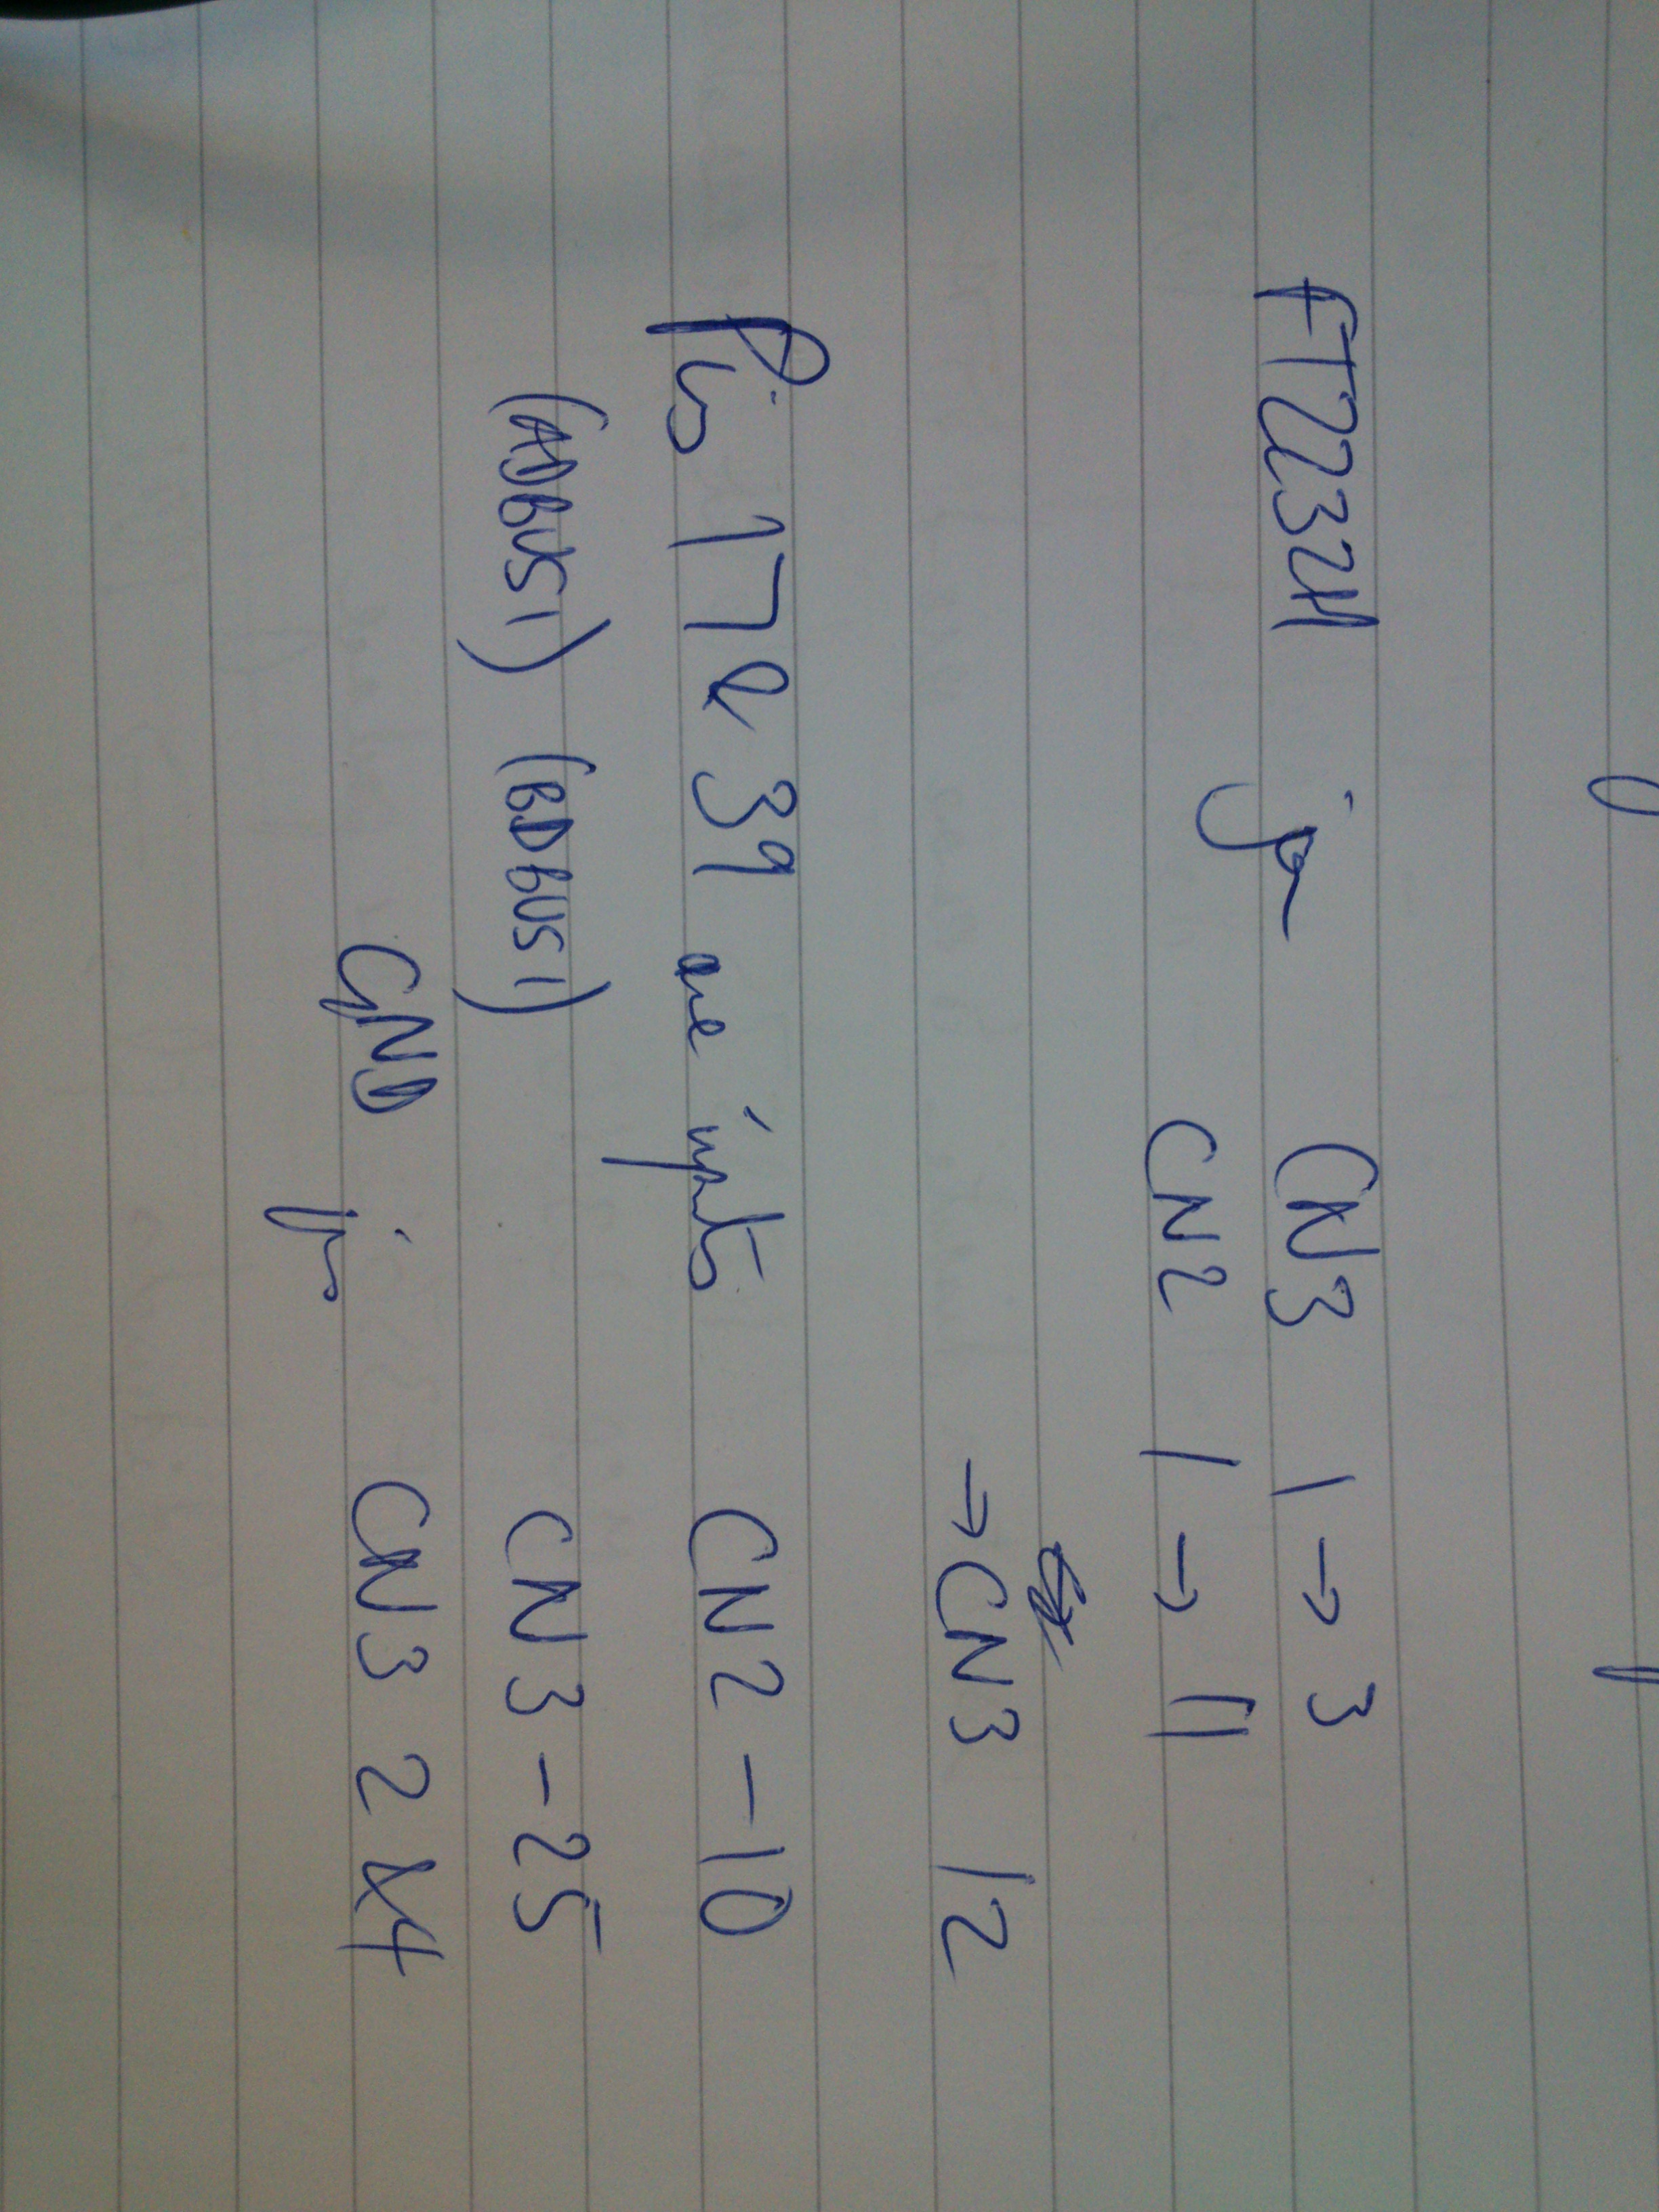 FT2232H CN3 1 → 3
CN2 1 → 11
→ CN3 12
Pins 17 & 39 are inputs CN2 - 10
(ADBUS1) (BDBUS1) CN3 - 25
GND CN3 2 & 4